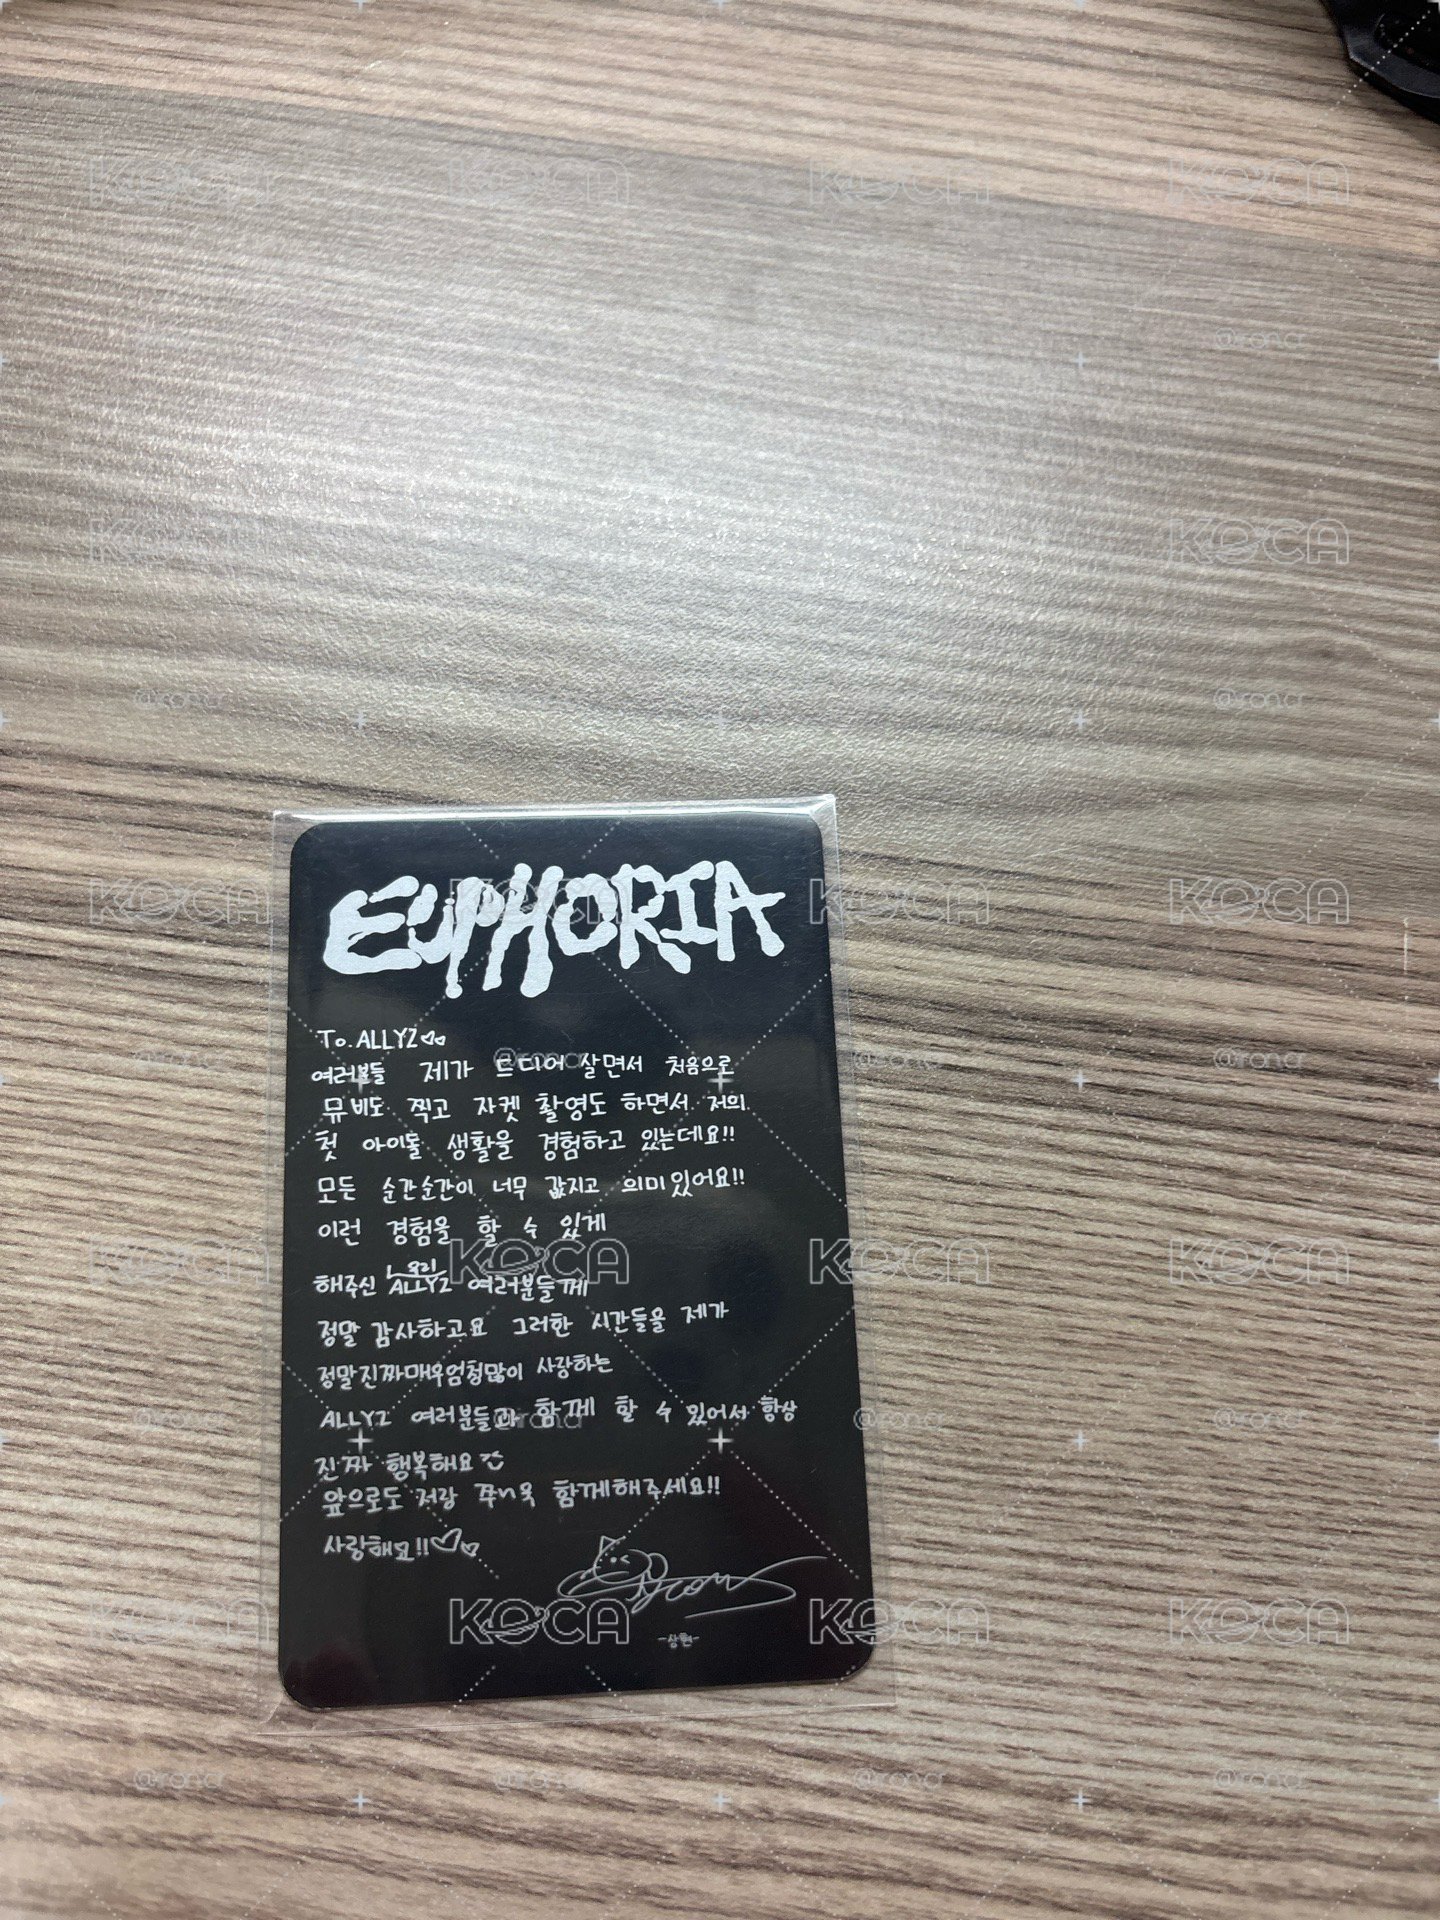 EUPHORIA
To. ALLYZ♡♡
여러분들 제가 드디어 살면서 처음으로
뮤비도 찍고 자켓 촬영도 하면서 저희
첫 아이돌 생활을 경험하고 있는데요!!
모든 순간순간이 너무 값지고 의미있어요!!
이런 경험을 할 수 있게
해주신 우리 ALLYZ 여러분들께
정말 감사하고요 그러한 시간들을 제가
정말진짜매우엄청많이 사랑하는
ALLYZ 여러분들과 함께 할 수 있어서 항상
진짜 행복해요
앞으로도 저랑 쭈~욱 함께해주세요!!
사랑해요!!♡♡
-상현-
KOCA
@roncr